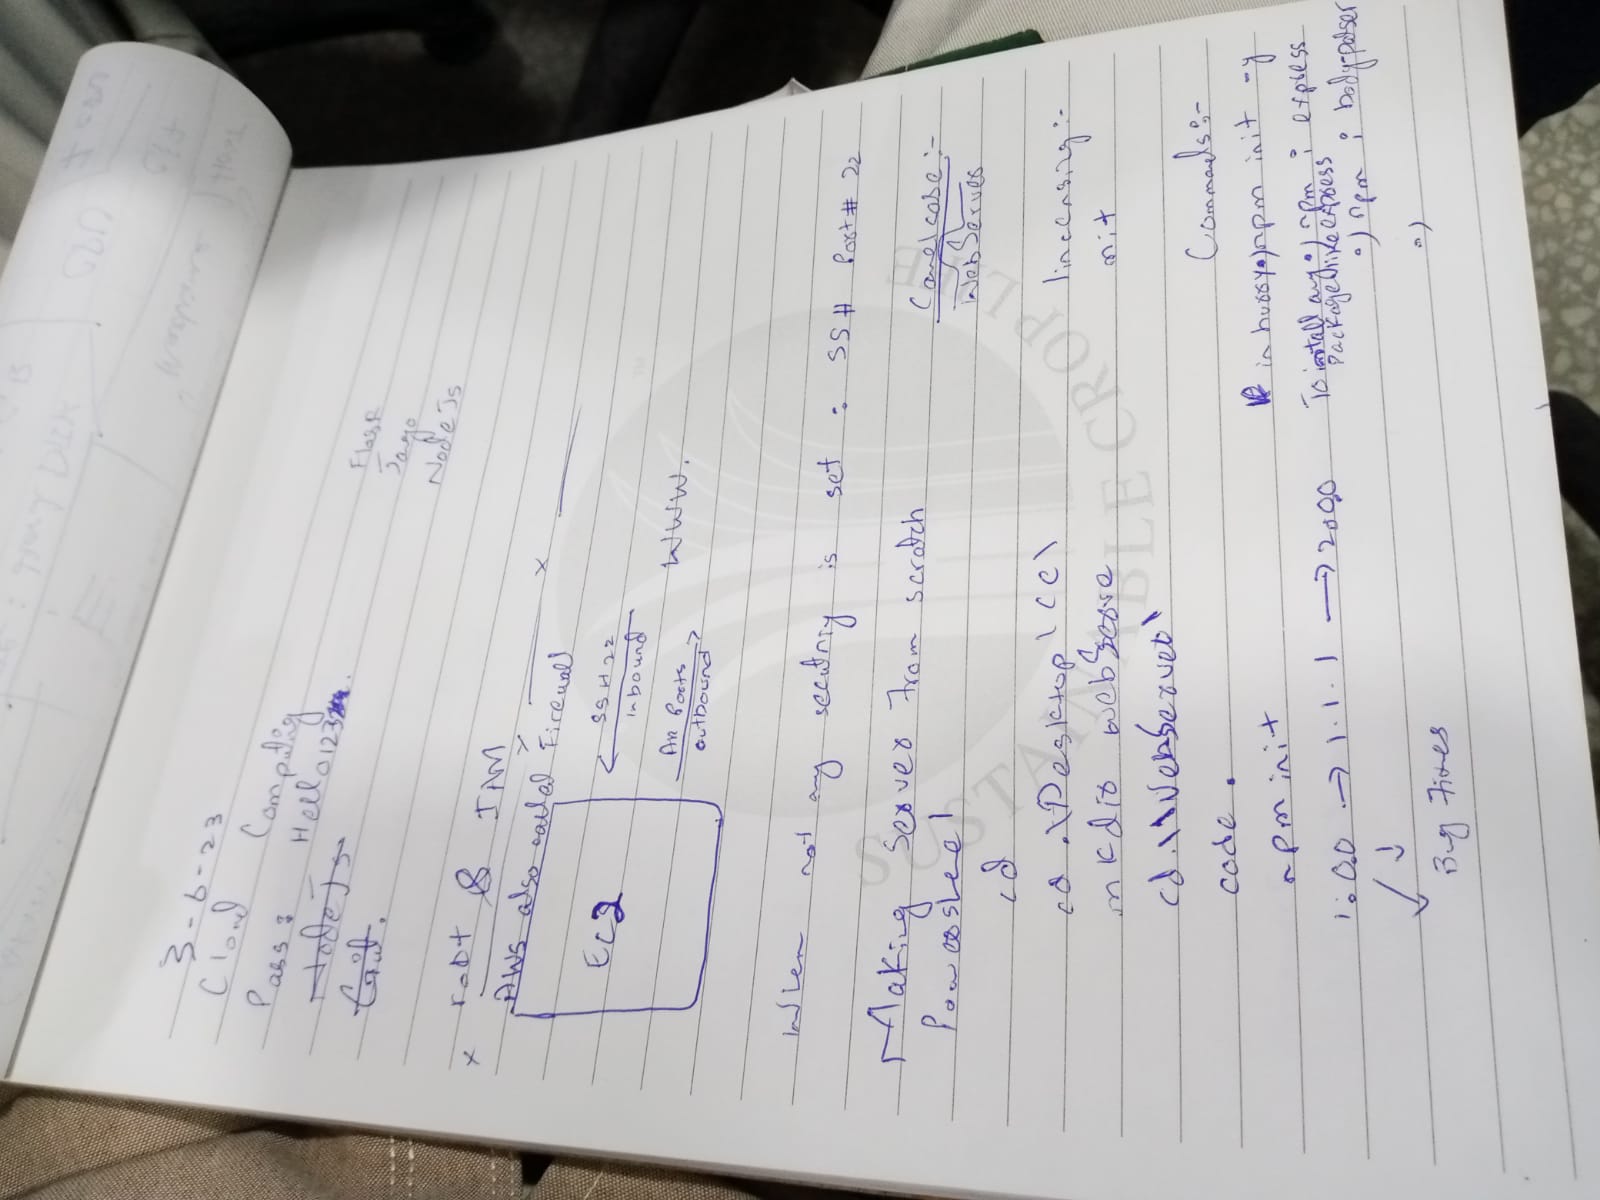 3-6-23
Cloud Computing
Pass: Hello123
Node Js
Git.
Flask
Jango
Node Js
x root & IAM
AWS also called Firewall
x
EC2
SSH 22
inbound
All Ports
outbound
WWW.
When not any security is set : SSH Port # 22
Making Server from scratch
Powershell
cd
cd .\Desktop\CC\
mkdir webServer
cd .\WebServer\
code .
npm init
1.0.0 → 1.1.1 → 2.0.0
Bug Fixes
Camelcase:-
WebServer
lincensing:-
mit
Commands:-
in hurry npm init -y
To install any npm i express
Package like express
npm i body-parser
SUSTAINABLE CROP LIFE